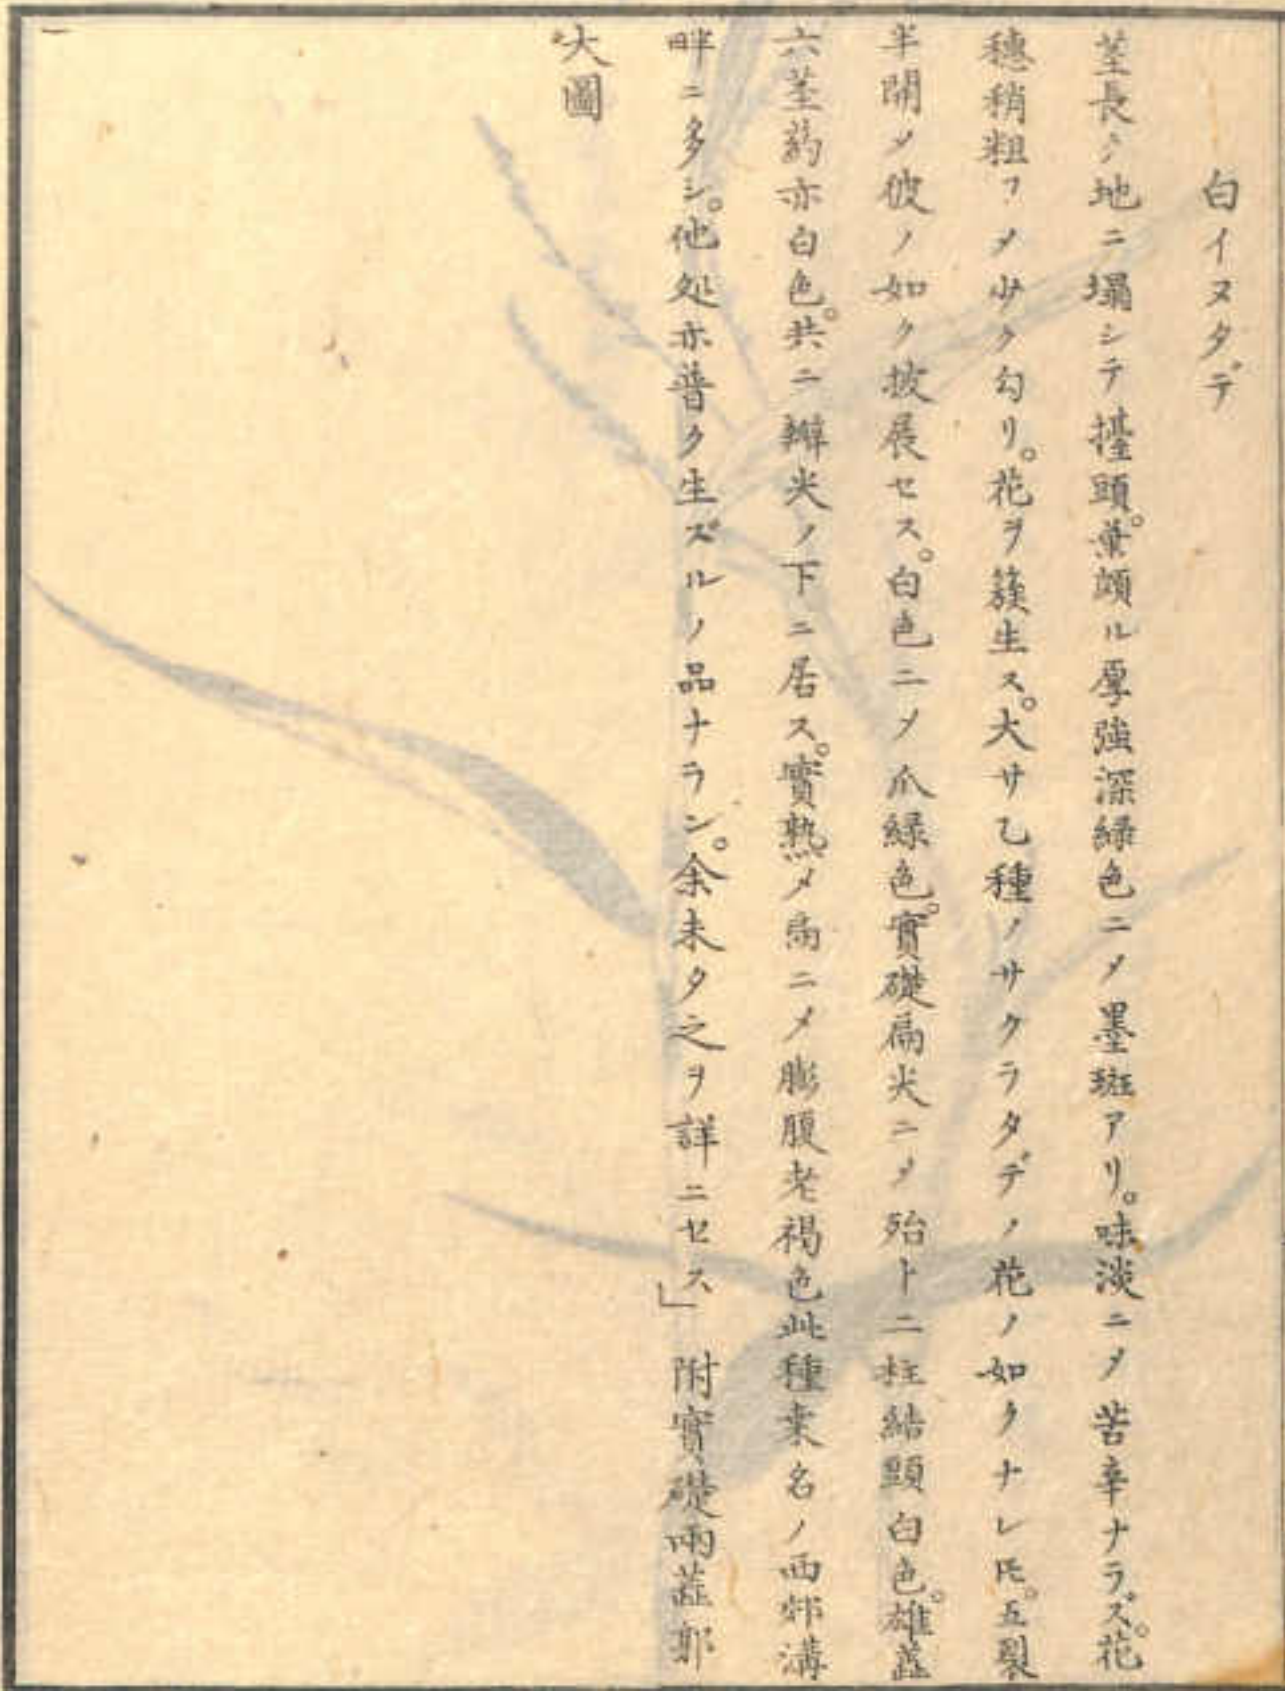 白イヌタデ
茎長ク地ニ塌シテ擡頭。葉頗ル厚強深緑色ニメ墨斑アリ。味淡ニメ苦辛ナラズ。花
穗稍粗フメ少ク勾リ。花ヲ簇生ス。大サ乙種ノサクラタデノ花ノ如クナレ𪜈。五裂
半開メ彼ノ如ク披展セス。白色ニメ爪緑色。實礎扁尖ニメ殆ト二柱結頭白色。雄蕋
六茎葯亦白色。共ニ瓣尖ノ下ニ居ス。實熟メ扁ニメ膨腹老褐色此種桒名ノ西郊溝
畔ニ多シ。他処亦普ク生ズルノ品ナラン。余未タ之ヲ詳ニセス」 附實礎兩蕋郭
大圖